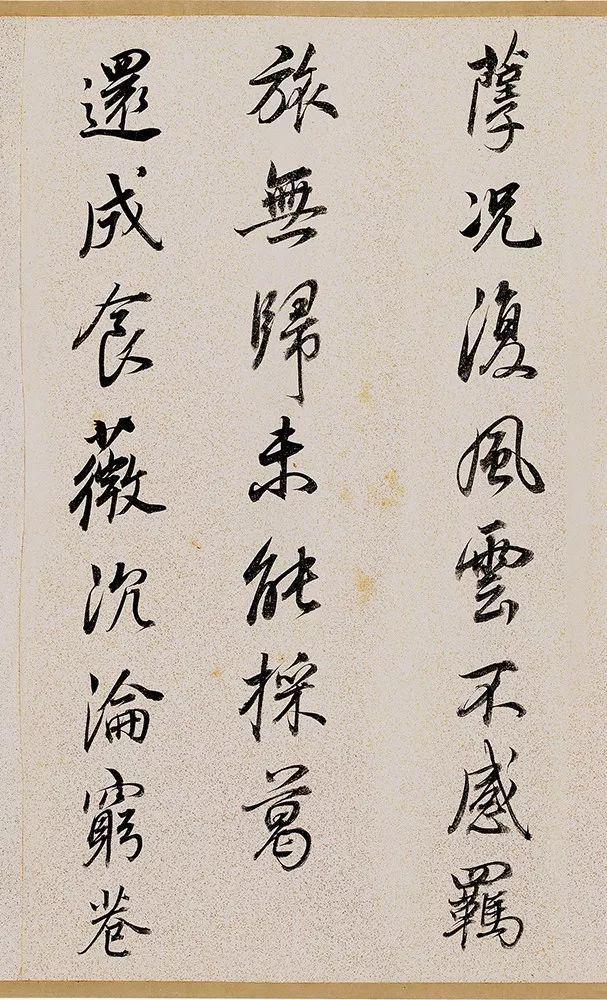 孽况復風雲不感羈
旅無歸未能採葛
還成食薇沉淪窮巷